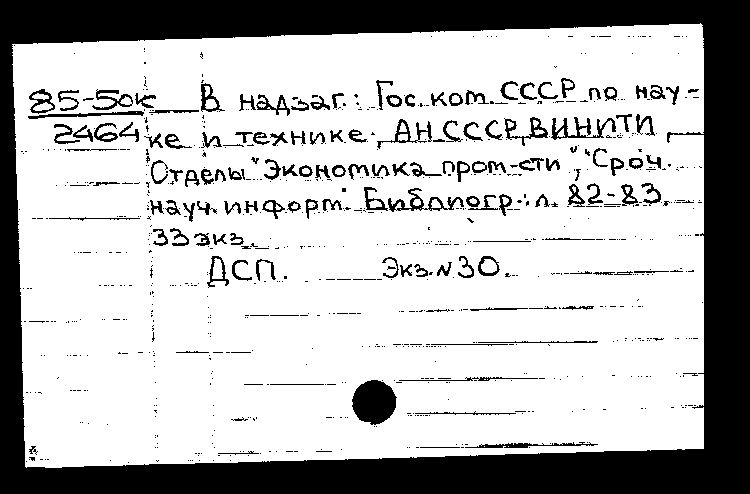 85-5ок В надзаг.: Гос. ком. СССР по нау-
2464 ке и технике, АН СССР, ВИНИТИ,
Отделы "Экономика пром-сти", "Сроч.
науч. информ." Библиогр.: л. 82-83.
33 экз.
ДСП. Экз. N 30.